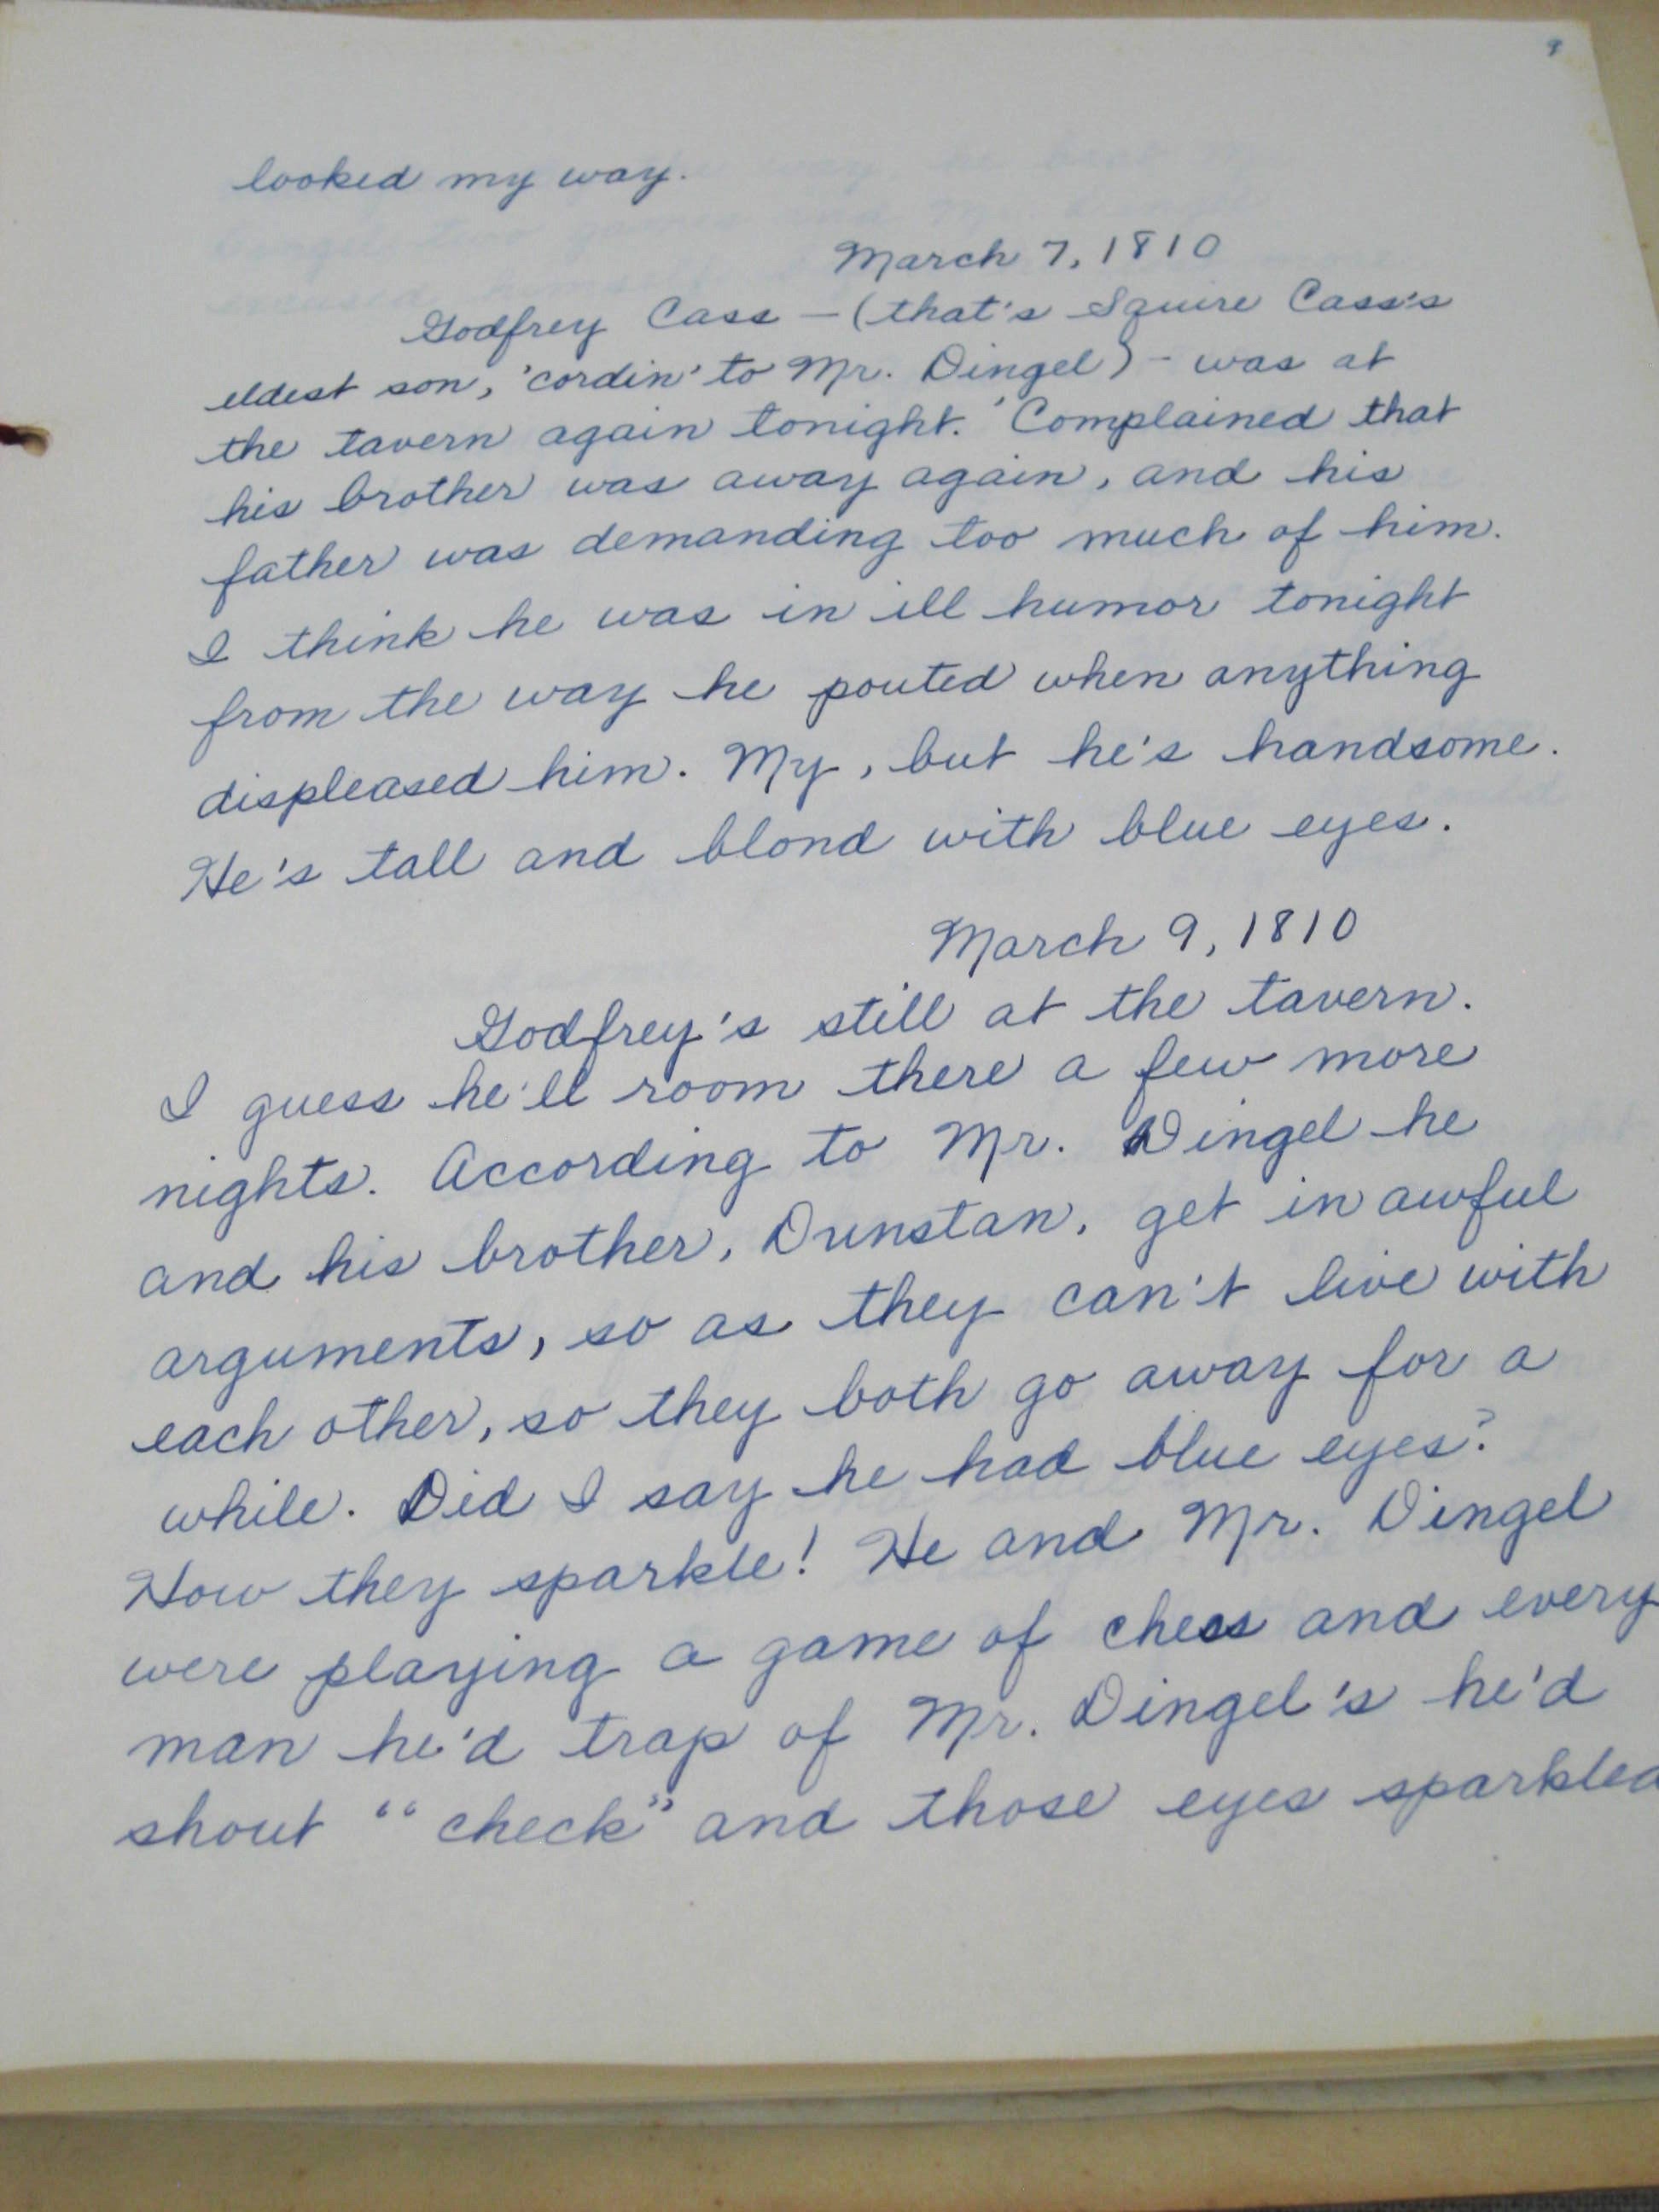 looked my way.
March 7, 1810
Godfrey Cass - (that's Squire Cass's
eldest son, 'cordin' to Mr. Dingel) - was at
the tavern again tonight. Complained that
his brother was away again, and his
father was demanding too much of him.
I think he was in ill humor tonight
from the way he pouted when anything
displeased him. My, but he's handsome.
He's tall and blond with blue eyes.
March 9, 1810
Godfrey's still at the tavern.
I guess he'll room there a few more
nights. According to Mr. Dingel he
and his brother, Dunstan, get in awful
arguments, so as they can't live with
each other, so they both go away for a
while. Did I say he had blue eyes?
How they sparkle! He and Mr. Dingel
were playing a game of chess and every
man he'd trap of Mr. Dingel's he'd
shout "check" and those eyes sparkled